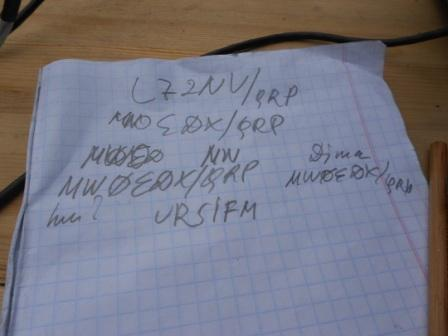 LZ2NV/QRP
MW0EDX/QRP
NW Dima
MW0EDX/QRP MW0EDX/QRP
UR5IFM